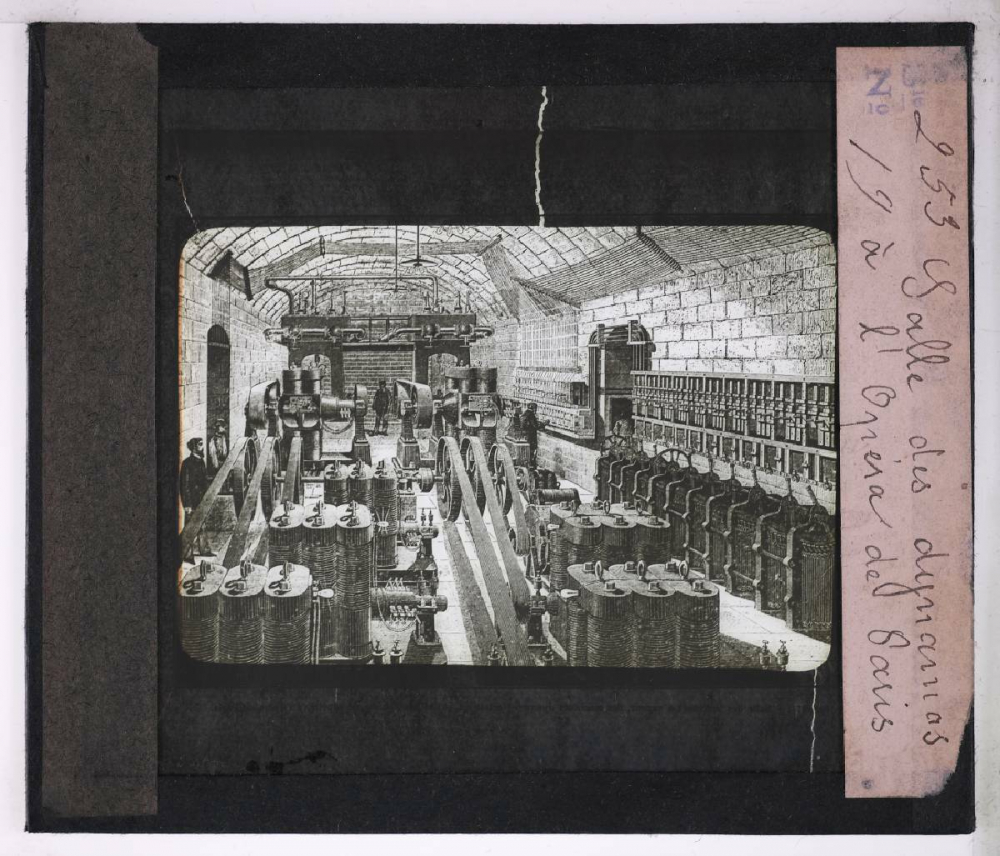 Bte
No
253 Salle des dynamos
19 à l'Opéra de Paris